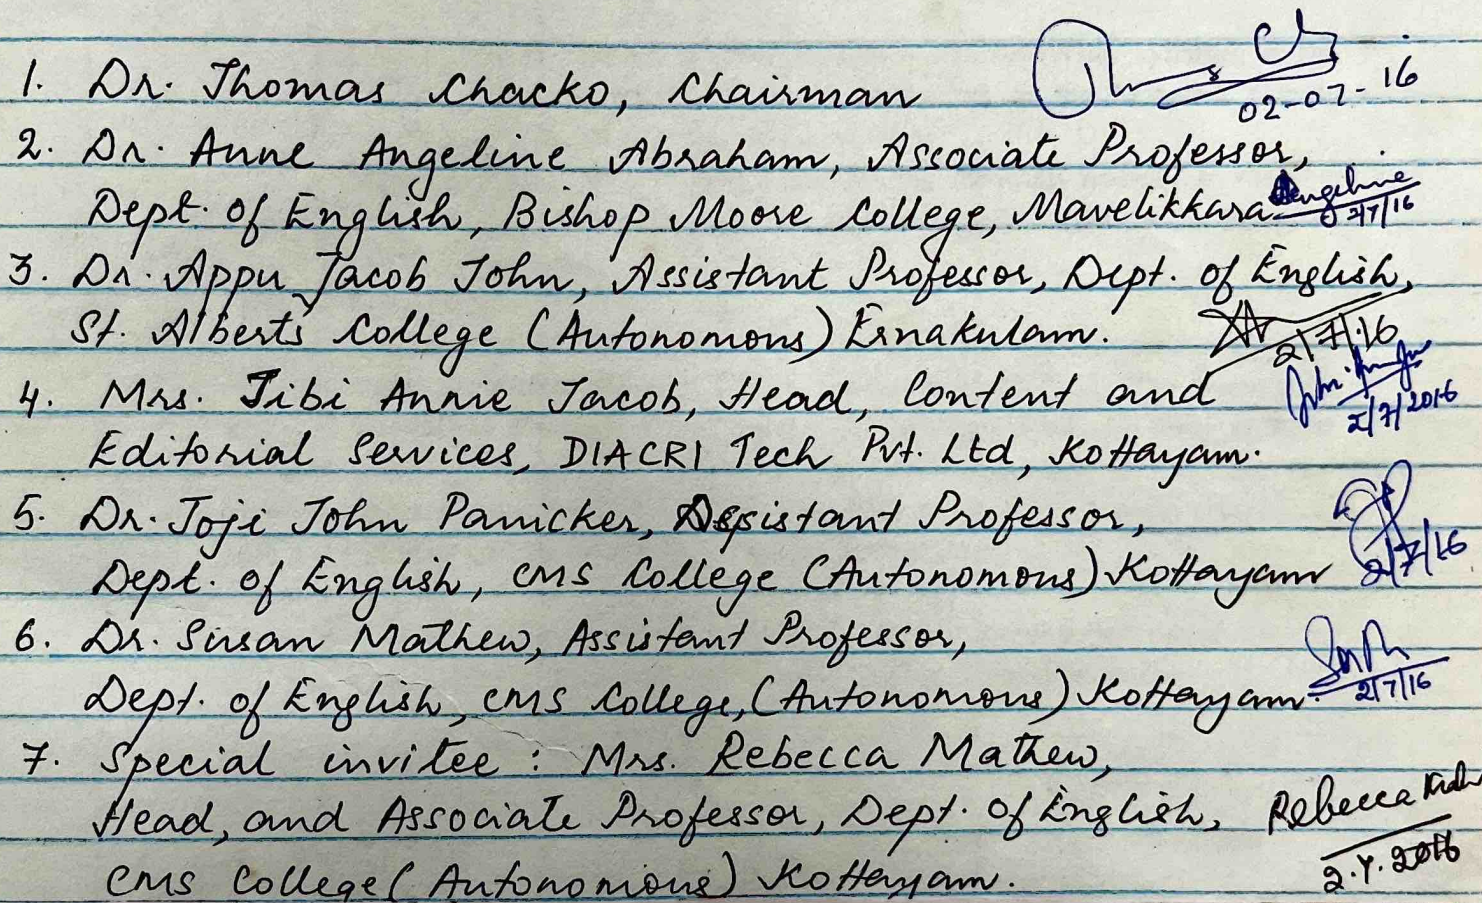 1. Dr. Thomas Chacko, Chairman
02-07-16
2. Dr. Anne Angeline Abraham, Associate Professor,
Dept. of English, Bishop Moore College, Mavelikkara Angeline
2/7/16
3. Dr. Appu Jacob John, Assistant Professor, Dept. of English,
St. Alberts College (Autonomous) Ernakulam.
2/7/16
4. Mrs. Jibi Annie Jacob, Head, Content and
2/7/2016
Editorial Services, DIACRI Tech Pvt. Ltd, Kottayam.
5. Dr. Joji John Panicker, Assistant Professor,
Dept. of English, CMS College (Autonomous) Kottayam
2/7/16
6. Dr. Susan Mathew, Assistant Professor,
Dept. of English, CMS College, (Autonomous) Kottayam.
2/7/16
7. Special invitee : Mrs. Rebecca Mathew,
Head, and Associate Professor, Dept. of English, Rebecca
CMS College (Autonomous) Kottayam.
2.7.2016